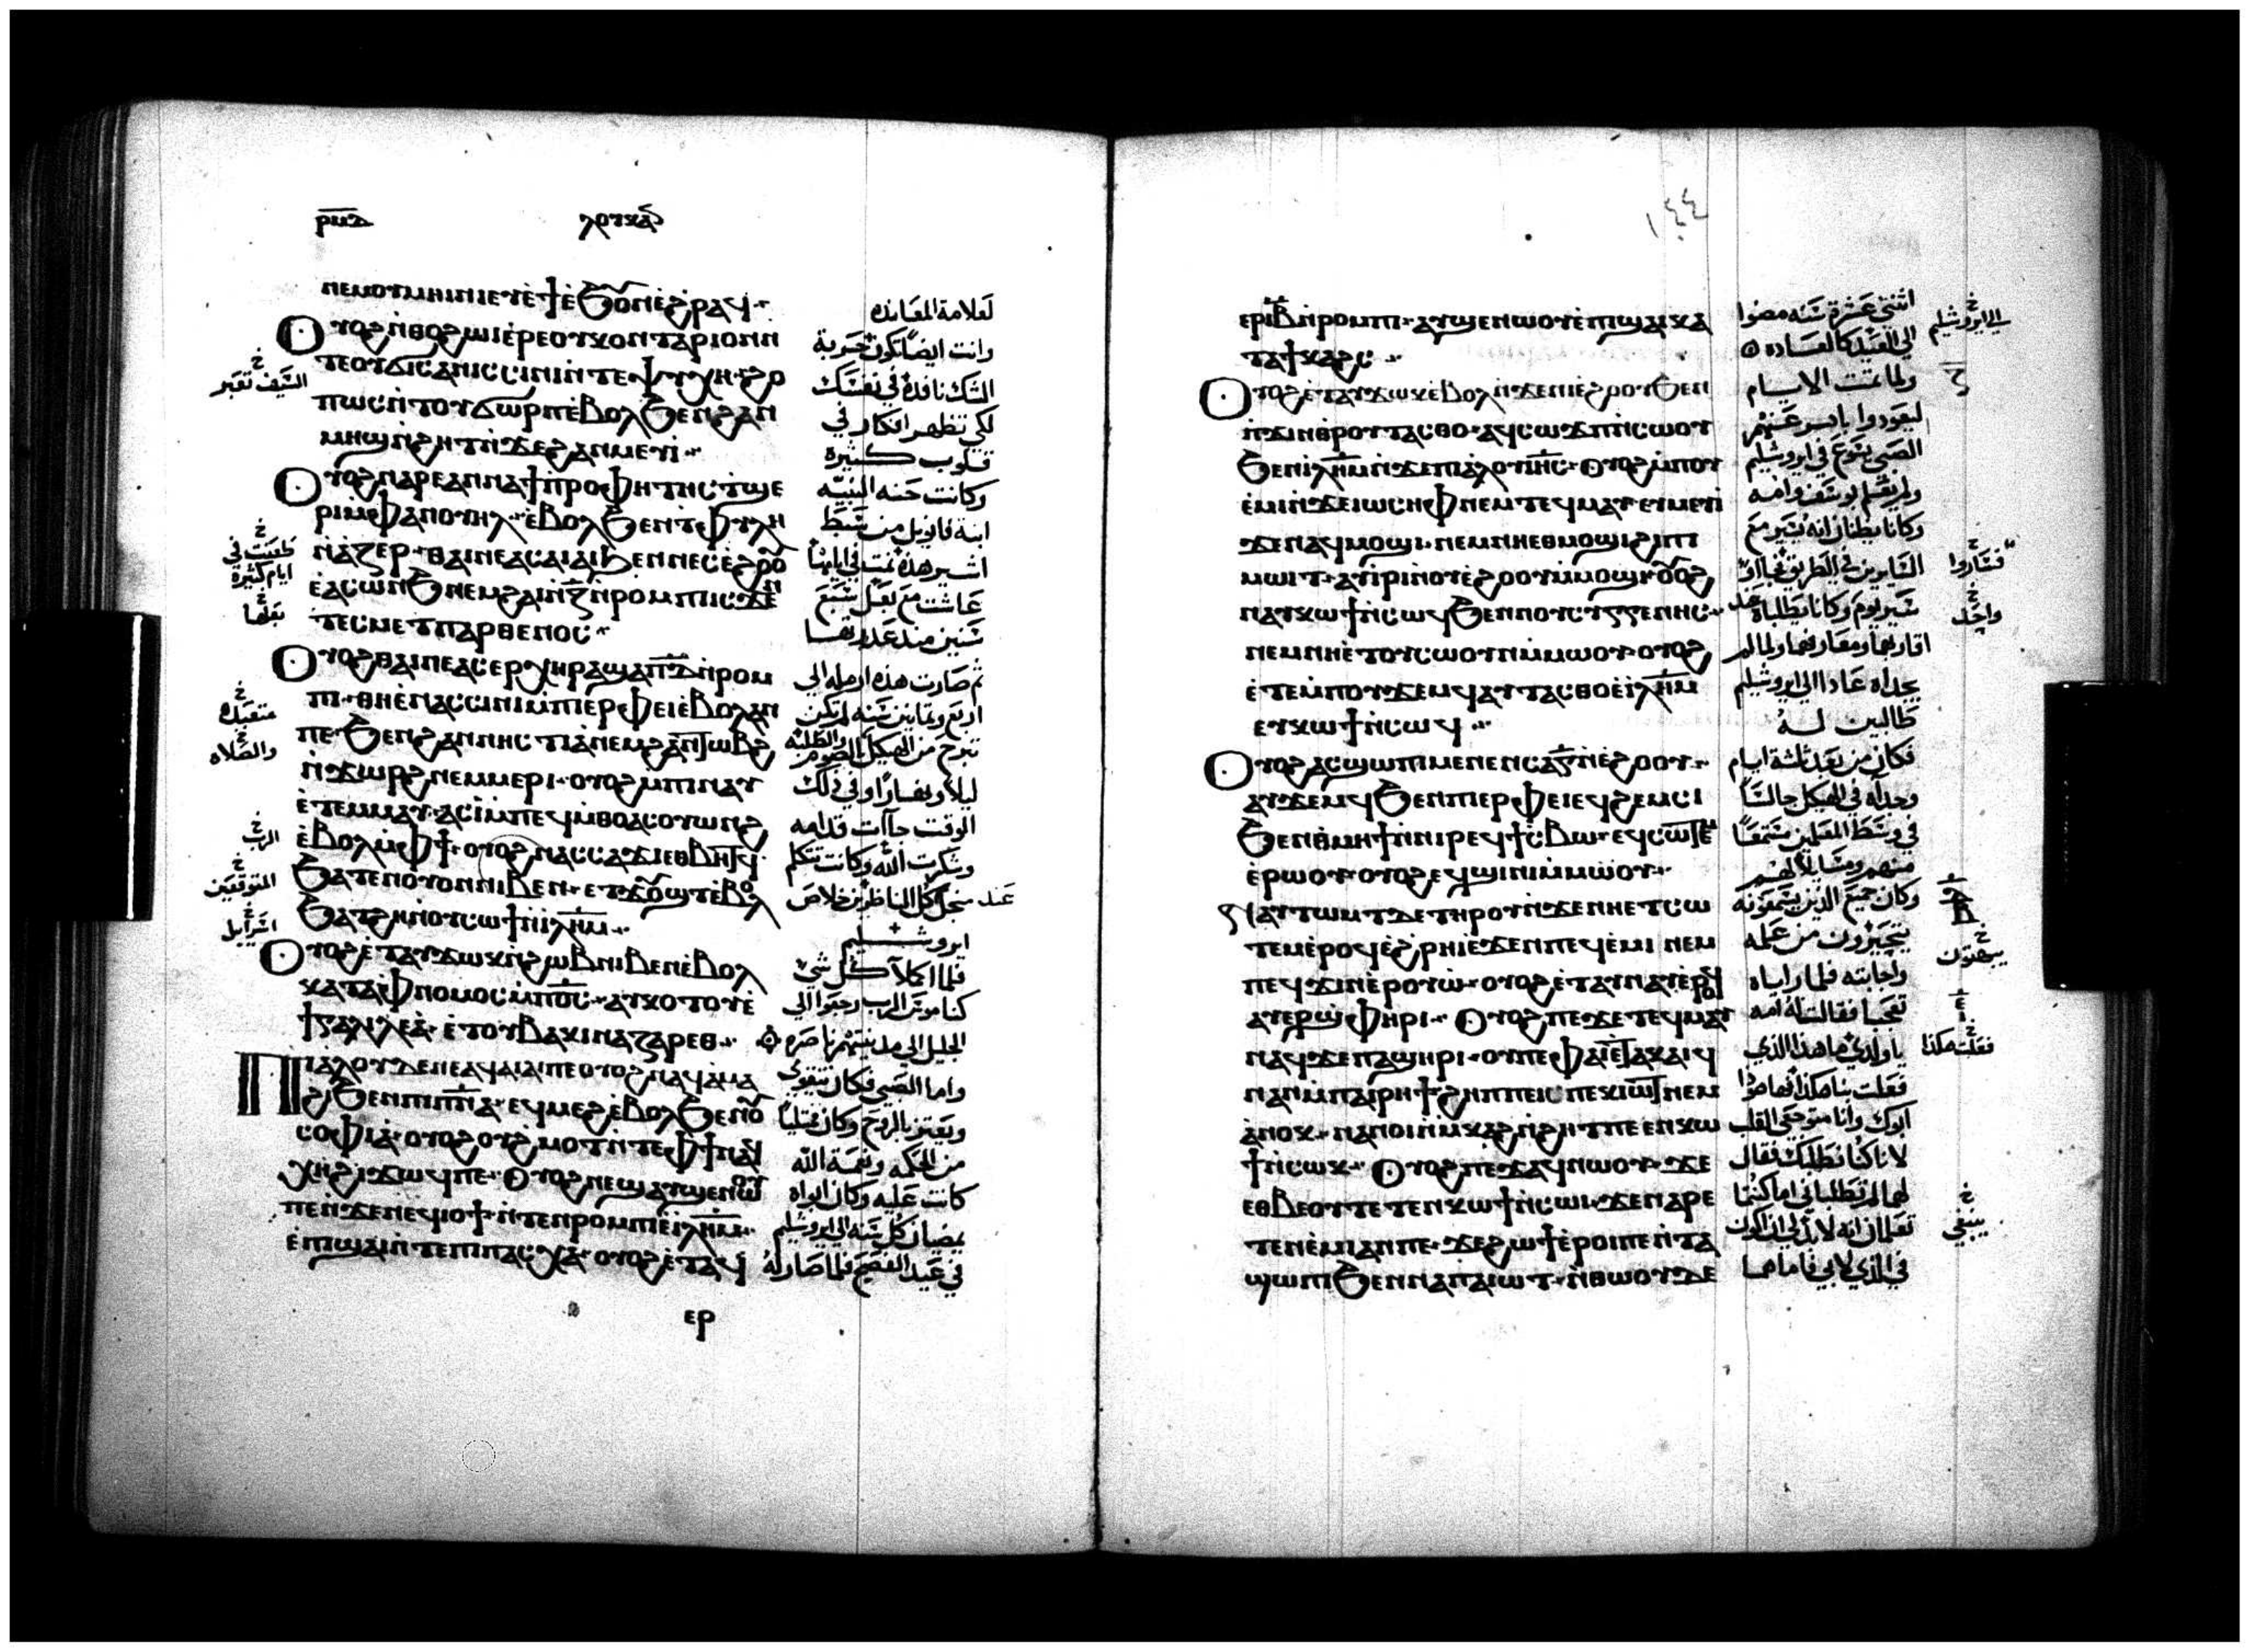 ⲣⲙⲇ ⲗⲟⲩⲕⲁⲛ
ⲛⲉⲙⲟⲩⲙⲏⲓⲛⲓⲉⲩⲉ̀ϯⲉ̀ϧⲟⲩⲛⲉ̀ϩⲣⲁϥ
ⲟⲩⲟϩⲛ̀ⲑⲟϩⲱⲓⲉ̀ⲣⲉⲟⲩⲭⲟⲛⲧⲁⲣⲓⲟⲛⲛ
ⲧⲉⲟⲩϭⲓⲥⲁⲛⲓⲥⲥⲓⲛⲓⲛ̀ⲧⲉⲯⲩⲭⲏϩⲟ
ⲡⲱⲥⲛ̀ⲧⲟⲩϭⲱⲣⲡⲉ̀ⲃⲟⲗϧⲉⲛϩⲁⲛ
ⲙⲏϣⲛ̀ϩⲏⲧⲛ̀ϫⲉϩⲁⲛⲙⲉⲩⲓ
ⲟⲩⲟϩⲛⲁⲣⲉⲁⲛⲛⲁϯⲡⲣⲟⲫⲏⲧⲏⲥⲧϣⲉ
ⲣⲓⲙ̀ⲫⲁⲛⲟⲩⲏⲗⲉ̀ⲃⲟⲗϧⲉⲛⲧⲉⲫⲩⲗⲏ
ⲛ̀ⲁⲥⲏⲣ ⲑⲁⲓⲛⲉⲁⲥⲁⲓⲁⲓϧⲉⲛⲛⲉⲥⲉ̀ϩⲟⲟⲩ
ⲉ̀ⲁⲥⲱⲛϧⲛⲉⲙϩⲁⲓⲛ̀ⲍⲛ̀ⲣⲟⲙⲡⲓⲓⲥϫⲉⲛ
ⲧⲉⲥⲙⲉⲧⲡⲁⲣⲑⲉⲛⲟⲥ
ⲟⲩⲟϩⲑⲁⲓⲛⲉⲁⲥⲉⲣⲭⲏⲣⲁϣⲁⲡⲇⲛ̀ⲣⲟⲙ
ⲡⲓ ⲑⲏⲉ̀ⲛⲁⲥⲥⲓⲛⲓⲙ̀ⲡⲓⲉⲣⲫⲉⲓⲉ̀ⲃⲟⲗⲁⲛ
ⲡⲉ ϧⲉⲛϩⲁⲛⲛⲏⲥⲧⲓⲁ̀ⲛⲉⲙϩⲁⲛⲧⲱⲃϩ
ⲛ̀ϫⲱⲣϩⲛⲉⲙⲙⲉⲣⲓ ⲟⲩⲟϩⲙⲡⲓⲛⲁⲩ
ⲉ̀ⲧⲉⲙⲙⲁⲩ ⲁⲥⲓ̀ⲙ̀ⲡⲉϥⲙ̀ⲑⲟⲁⲥⲟⲩⲱⲛϩ
ⲉ̀ⲃⲟⲗⲙ̀ⲫϯ ⲟⲩⲟϩⲛⲁⲥⲥⲁϫⲓⲉⲑⲃⲏⲧϥ
ϧⲁⲧⲉⲛⲟⲩⲟⲛⲛⲓⲃⲉⲛ ⲉⲧϫⲟⲩϣⲧⲉ̀ⲃⲟⲗ
ϧⲁⲧϩⲏⲙ̀ⲡⲥⲱϯⲛ̀ⲓⲗⲏⲙ
ⲟⲩⲟϩⲉ̀ⲧⲁⲩϫⲱⲕⲛ̀ϩⲱⲃⲛⲓⲃⲉⲛⲉ̀ⲃⲟⲗ
ⲕⲁⲧⲁⲫⲛⲟⲙⲟⲥⲙ̀ⲡⲟⲥ ⲁⲩⲕⲟⲧⲟⲩⲉ̀
ϯⲅⲁⲗⲓⲗⲉⲁ̀ ⲉ̀ⲧⲟⲩⲃⲁⲕⲓⲛⲁⲍⲁⲣⲉⲑ
ⲡⲓⲁ̀ⲗⲟⲩⲇⲉⲛⲉⲁϥⲁⲓⲁⲓⲡⲉⲟⲩⲟϩⲛⲁϥⲁⲙⲁ
ϩⲓϧⲉⲛⲡⲓⲡⲛⲁ ⲉϥⲙⲉϩⲉ̀ⲃⲟⲗϧⲉⲛⲟⲩ
ⲥⲟⲫⲓⲁ̀ ⲟⲩⲟϩⲟⲩϩⲙⲟⲧⲛ̀ⲧⲉⲫϯⲛⲁϥ
ⲭⲏϩⲓϫⲱϥⲡⲉ ⲟⲩⲟϩⲛⲉϣⲁⲩϣⲉⲛⲱⲟⲩ
ⲡⲉⲛ̀ϫⲉⲛⲉϥⲓⲟϯ ⲛ̀ⲧⲉⲛⲣⲟⲙⲡⲓⲉ̀ⲓⲗⲏⲙ
ⲉ̀ⲡϣⲁⲓⲛ̀ⲧⲉⲡⲓⲡⲁⲥⲭⲁ ⲟⲩⲟϩⲉ̀ⲧⲁϥ
ⲉⲣ
لعلامة المعانده
وانت ايضا تكون حربة
الشك نافذة في نفسك
لكي تظهر افكار في
قلوب كثيرة
وكانت حنه النبيه
ابنة فانويل من سبط
اشير هذه نمت في ايامها
عاشت مع بعل سبع
سنين منذ عذرتها
ثم صارت هذه ارمله الي
اربع وثمانين سنه لم تكن
تبرح من الهيكل بالصوم والطلبه
ليلا ونهارا وفي ذلك
الوقت جآات قدامه
وشكرت الله وكانت تتكلم
عند من اجل كل الناظرين خلاص
ايروشليم
فلما اكملا كل شي
كناموس الرب رجعوا الي
الجليل الي مدينتهم ناصرة
واما الصبي فكان يتقوي
ويعتز بالروح وكان ممتليا
من الحكمه ونعمة الله
كانت عليه وكان ابواه
يمضيان كل سنه الي ايروشليم
في عيد الفصح فلما صار له
السيف تعبر
طعنت في
ايام كثيرة
بعلها
متعبده
والصلاه
الرب
المتوقعين
اسرايل
١٤٤
ⲉⲣⲓⲃⲛ̀ⲣⲟⲙⲡⲓ ⲁⲩϣⲉⲛⲱⲟⲩⲉ̀ⲡϣⲁⲓⲕⲁ
ⲧⲁϯⲕⲁϩⲥ
ⲟⲩⲟϩⲉ̀ⲧⲁⲩϫⲱⲕⲉ̀ⲃⲟⲗⲛ̀ϫⲉⲛⲓⲉ̀ϩⲟⲟⲩϧⲉⲛ
ⲡ̀ϫⲓⲛⲑⲣⲟⲩⲧⲁⲥⲑⲟ ⲁϥⲥⲱϫⲡⲛ̀ⲥⲱⲟⲩ
ϧⲉⲛⲓⲗⲏⲙⲛ̀ϫⲉⲡⲓⲁ̀ⲗⲟⲩⲓⲏⲥ ⲟⲩⲟϩⲙ̀ⲡⲟⲩ
ⲉ̀ⲙⲓⲛ̀ϫⲉⲓⲱⲥⲏⲫⲛⲉⲙⲧⲉϥⲙⲁⲩ ⲉⲩⲙⲉⲩⲓ
ϫⲉⲛⲁϥⲙⲟϣⲓ ⲛⲉⲙⲛⲏⲉⲑⲙⲟϣⲓϩⲓⲡⲓ
ⲙⲱⲓⲧ ⲁⲩⲓ̀ⲣⲓⲛⲟⲩⲉ̀ϩⲟⲟⲩⲙ̀ⲙⲟϣⲓ ⲟⲩⲟϩ
ⲛⲁⲩⲕⲱϯⲛ̀ⲥⲱϥϧⲉⲛⲛⲟⲩⲥⲩⲅⲅⲉⲛⲏⲥ
ⲛⲉⲙⲛⲏⲉ̀ⲧⲟⲩⲥⲱⲟⲩⲛⲙ̀ⲙⲱⲟⲩ ⲟⲩⲟϩ
ⲉ̀ⲧⲉⲙ̀ⲡⲟⲩϫⲉⲙϥⲁⲩⲧⲁⲥⲑⲟⲉ̀ⲓⲗⲏⲙ
ⲉⲩⲕⲱϯⲛ̀ⲥⲱϥ
ⲟⲩⲟϩⲁⲥϣⲱⲡⲓⲙⲉⲛⲉⲛⲥⲁⲅⲛ̀ⲉ̀ϩⲟⲟⲩ
ⲁⲩϫⲉⲙϥϧⲉⲛⲡⲓⲉⲣⲫⲉⲓⲉϥϩⲉⲙⲥⲓ
ϧⲉⲛⲑⲙⲏϯⲛ̀ⲛⲓⲣⲉϥϯⲥ̀ⲃⲱ ⲉϥⲥⲱⲧⲉⲙ
ⲉ̀ⲣⲱⲟⲩ ⲟⲩⲟϩⲉϥϣⲓⲛⲓⲙ̀ⲙⲱⲟⲩ
ⲛⲁⲩⲧⲱⲙⲧⲇⲉⲧⲏⲣⲟⲩⲛ̀ϫⲉⲛⲏⲉⲧⲥⲱ
ⲧⲉⲙⲉ̀ⲣⲟϥⲉ̀ϩⲣⲏⲓⲉ̀ϫⲉⲛⲡⲉϥⲉ̀ⲙⲓ ⲛⲉⲙ
ⲡⲉϥϫⲓⲛⲉ̀ⲣⲟⲩⲱ̀ ⲟⲩⲟϩⲉ̀ⲧⲁⲩⲛⲁⲩⲉ̀ⲣⲟϥ
ⲁⲩⲉⲣϣⲫⲏⲣⲓ ⲟⲩⲟϩⲡⲉϫⲉⲧⲉϥⲙⲁⲩ
ⲛⲁϥϫⲉⲡⲁϣⲏⲣⲓ ⲟⲩⲡⲉⲫⲁⲓⲉⲧⲁⲕⲁⲓϥ
ⲛⲁⲛⲙ̀ⲡⲁⲓⲣⲏϯϩⲏⲡⲡⲉⲓⲥⲡⲉⲕⲓⲱⲧⲛⲉⲙ
ⲁ̀ⲛⲟⲕ ⲛⲁⲛⲟⲓⲛ̀ⲙ̀ⲕⲁϩⲛ̀ϩⲏⲧⲡⲉⲉⲛⲕⲱ
ϯⲛ̀ⲥⲱⲕ ⲟⲩⲟϩⲡⲉϫⲁϥⲛⲱⲟⲩ ϫⲉ
ⲉⲑⲃⲉⲟⲩⲧⲉⲧⲉⲛⲕⲱϯⲛ̀ⲥⲱⲓ ϫⲉⲛⲁⲣⲉ
ⲧⲉⲛⲉ̀ⲙⲓⲁⲛⲡⲉ ϫⲉϩⲱϯⲉ̀ⲣⲟⲓⲡⲉⲛ̀ⲧⲁ
ϣⲱⲡⲓϧⲉⲛⲛⲁⲡⲁⲓⲱⲧ ⲛ̀ⲑⲱⲟⲩⲇⲉ
اثنتي عشرة سنه مضوا
الي العيد كالعاده
ولما تمت الايام
ليعودوا
الصبي يسوع في ايروشليم
ولم يعلم يوسف وامه
وكانا يظنان انه يسير مع
السايرين في الطريق
مسير يوم وكانا يطلباه عند
اقاربهما ومعارفهما ولما لم
يجداه عادا الي ايروشليم
طالبين له
فكان من بعد ثلثة ايام
وجداه في الهيكل جالسا
في وسط المعلمين مستمعا
منهم ومسايلا لهم
وكان جميع الذين يسمعونه
يتحيرون من علمه
واجابته فلما راياه
تعجبا فقالت له امه
ياولدي ما هذا الذي
فعلت بنا هكذا هاهوذا
ابوك وانا متوجعي القلب
لاناكنا نطلبك فقال
لهما لم تطلباني اما كنتما
تعلمان انه لابد لي ان اكون
في الذي لابي فاما هما
الي ايروشليم
فسارا
واحد
يبهتون
فعلت هكذا
ينبغي